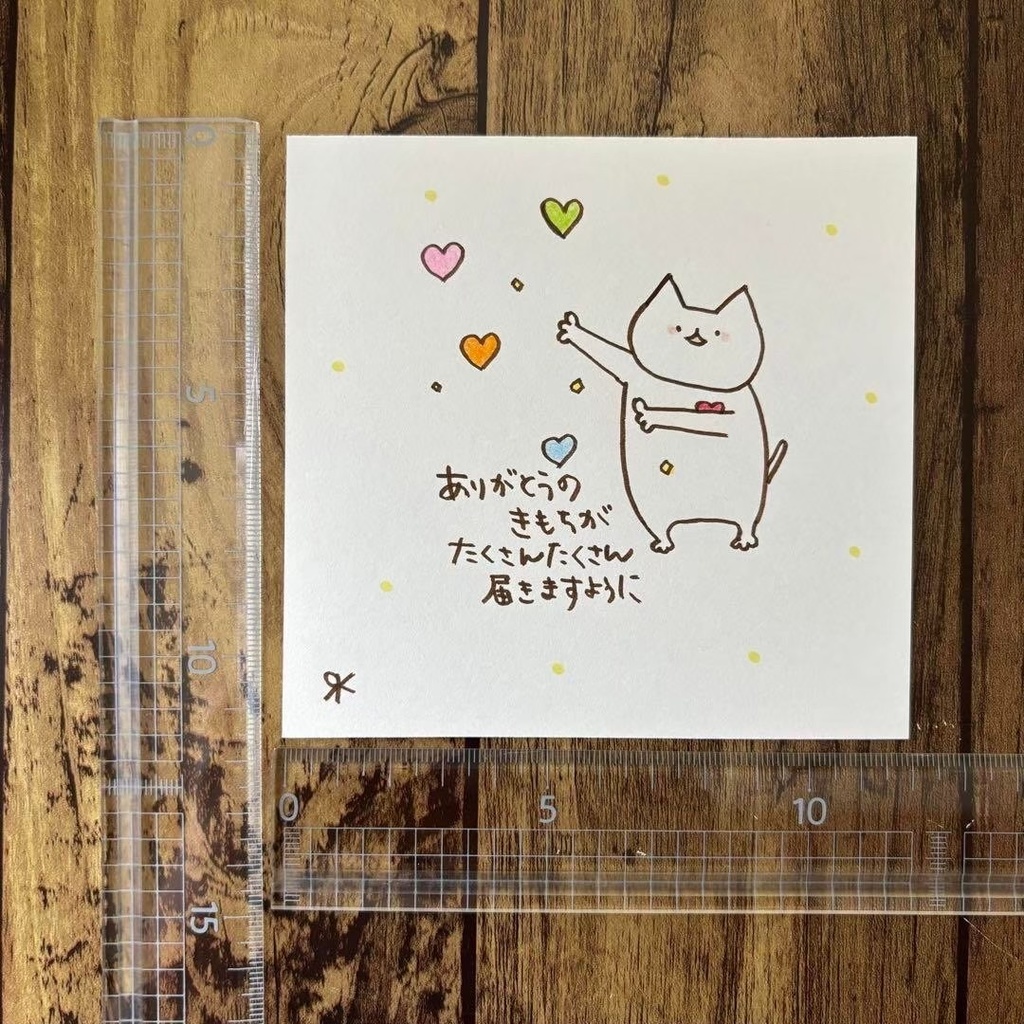 ありがとうの
きもちが
たくさんたくさん
届きますように
0
5
10
15
0
5
10